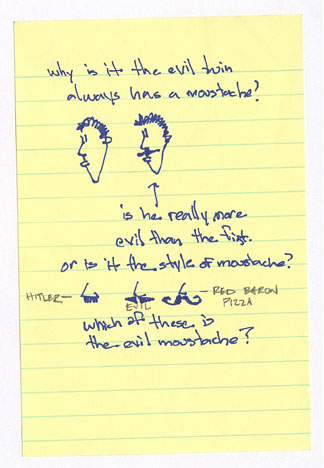 why is it the evil twin
always has a moustache?
is he really more
evil than the first.
or is it the style of moustache?
HITLER
EVIL
RED BARON
PIZZA
which of these is
the evil moustache?